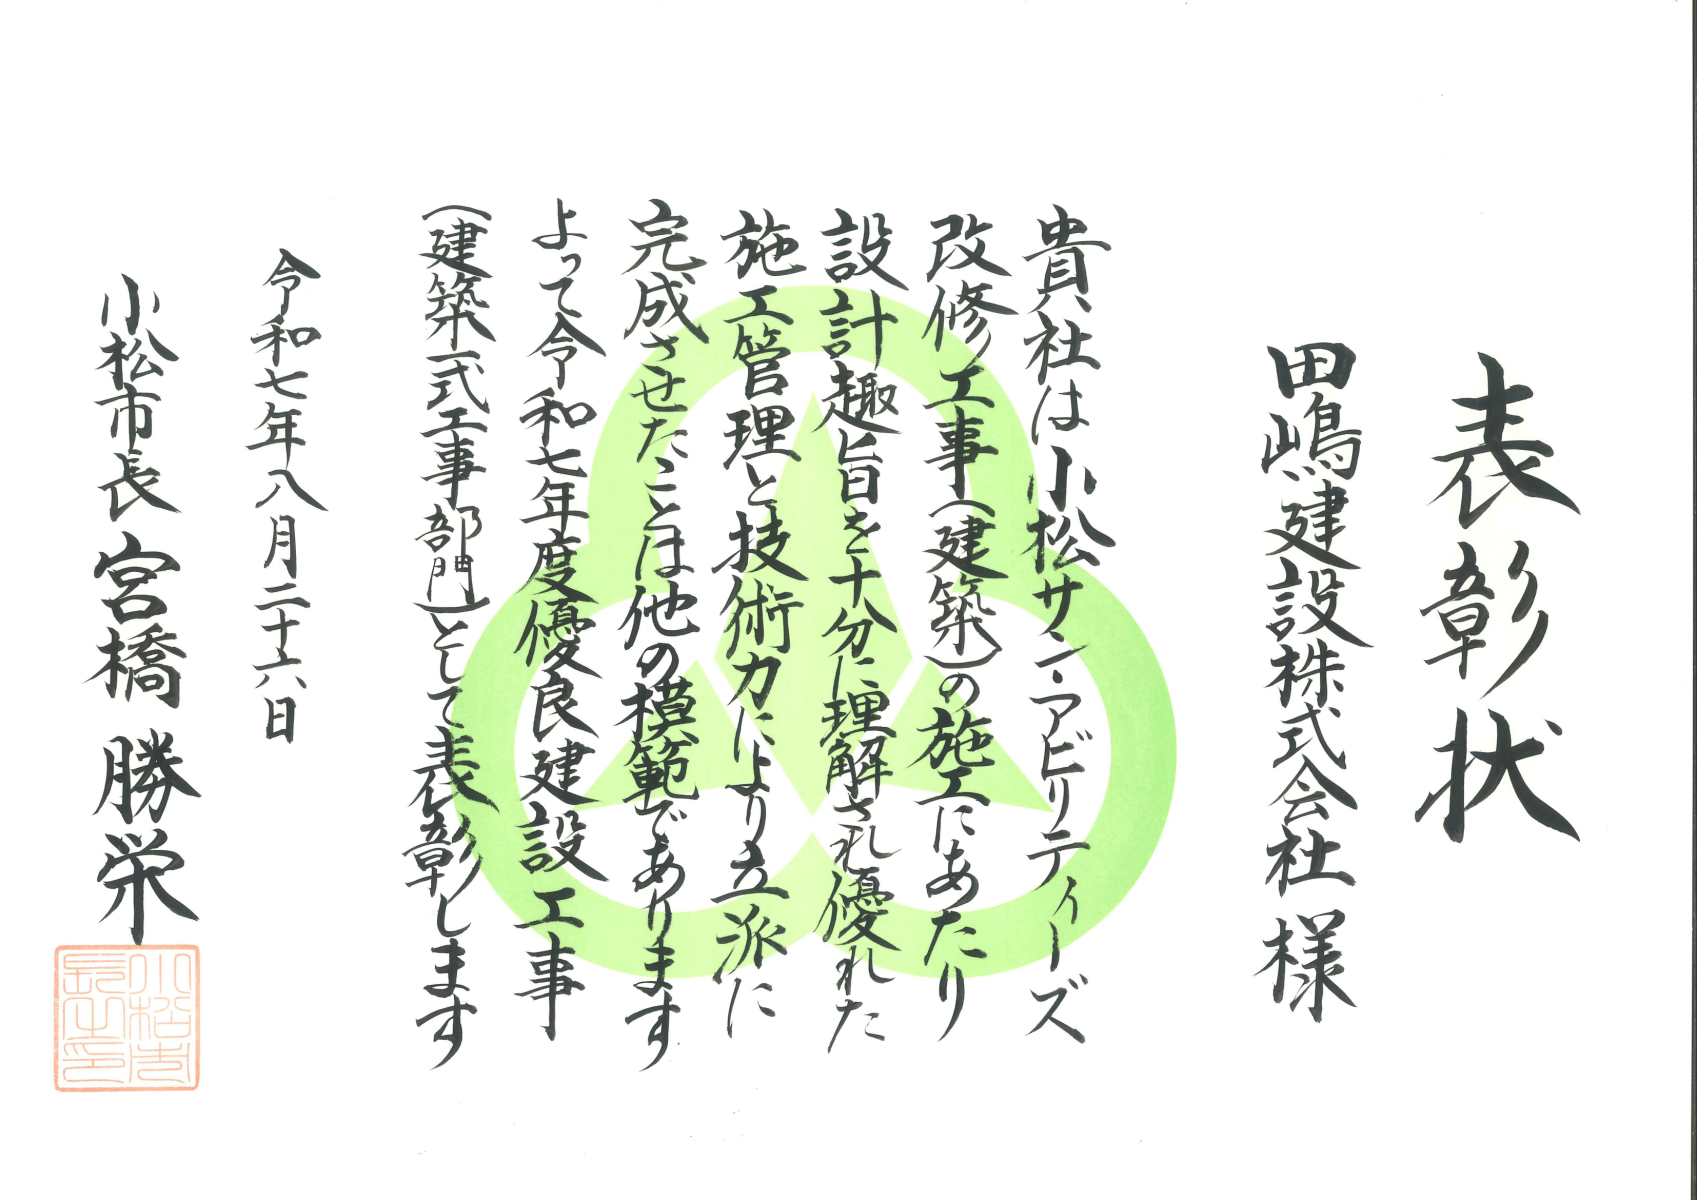 表彰状
田嶋建設株式会社 様
貴社は小松サン・アビリティーズ
改修工事(建築)の施工にあたり
設計趣旨を十分に理解され優れた
施工管理と技術力により立派に
完成させたことは他の模範であります
よって令和七年度優良建設工事
(建築一式工事部門)として表彰します
令和七年八月二十六日
小松市長 宮橋勝栄
小松市
長之印